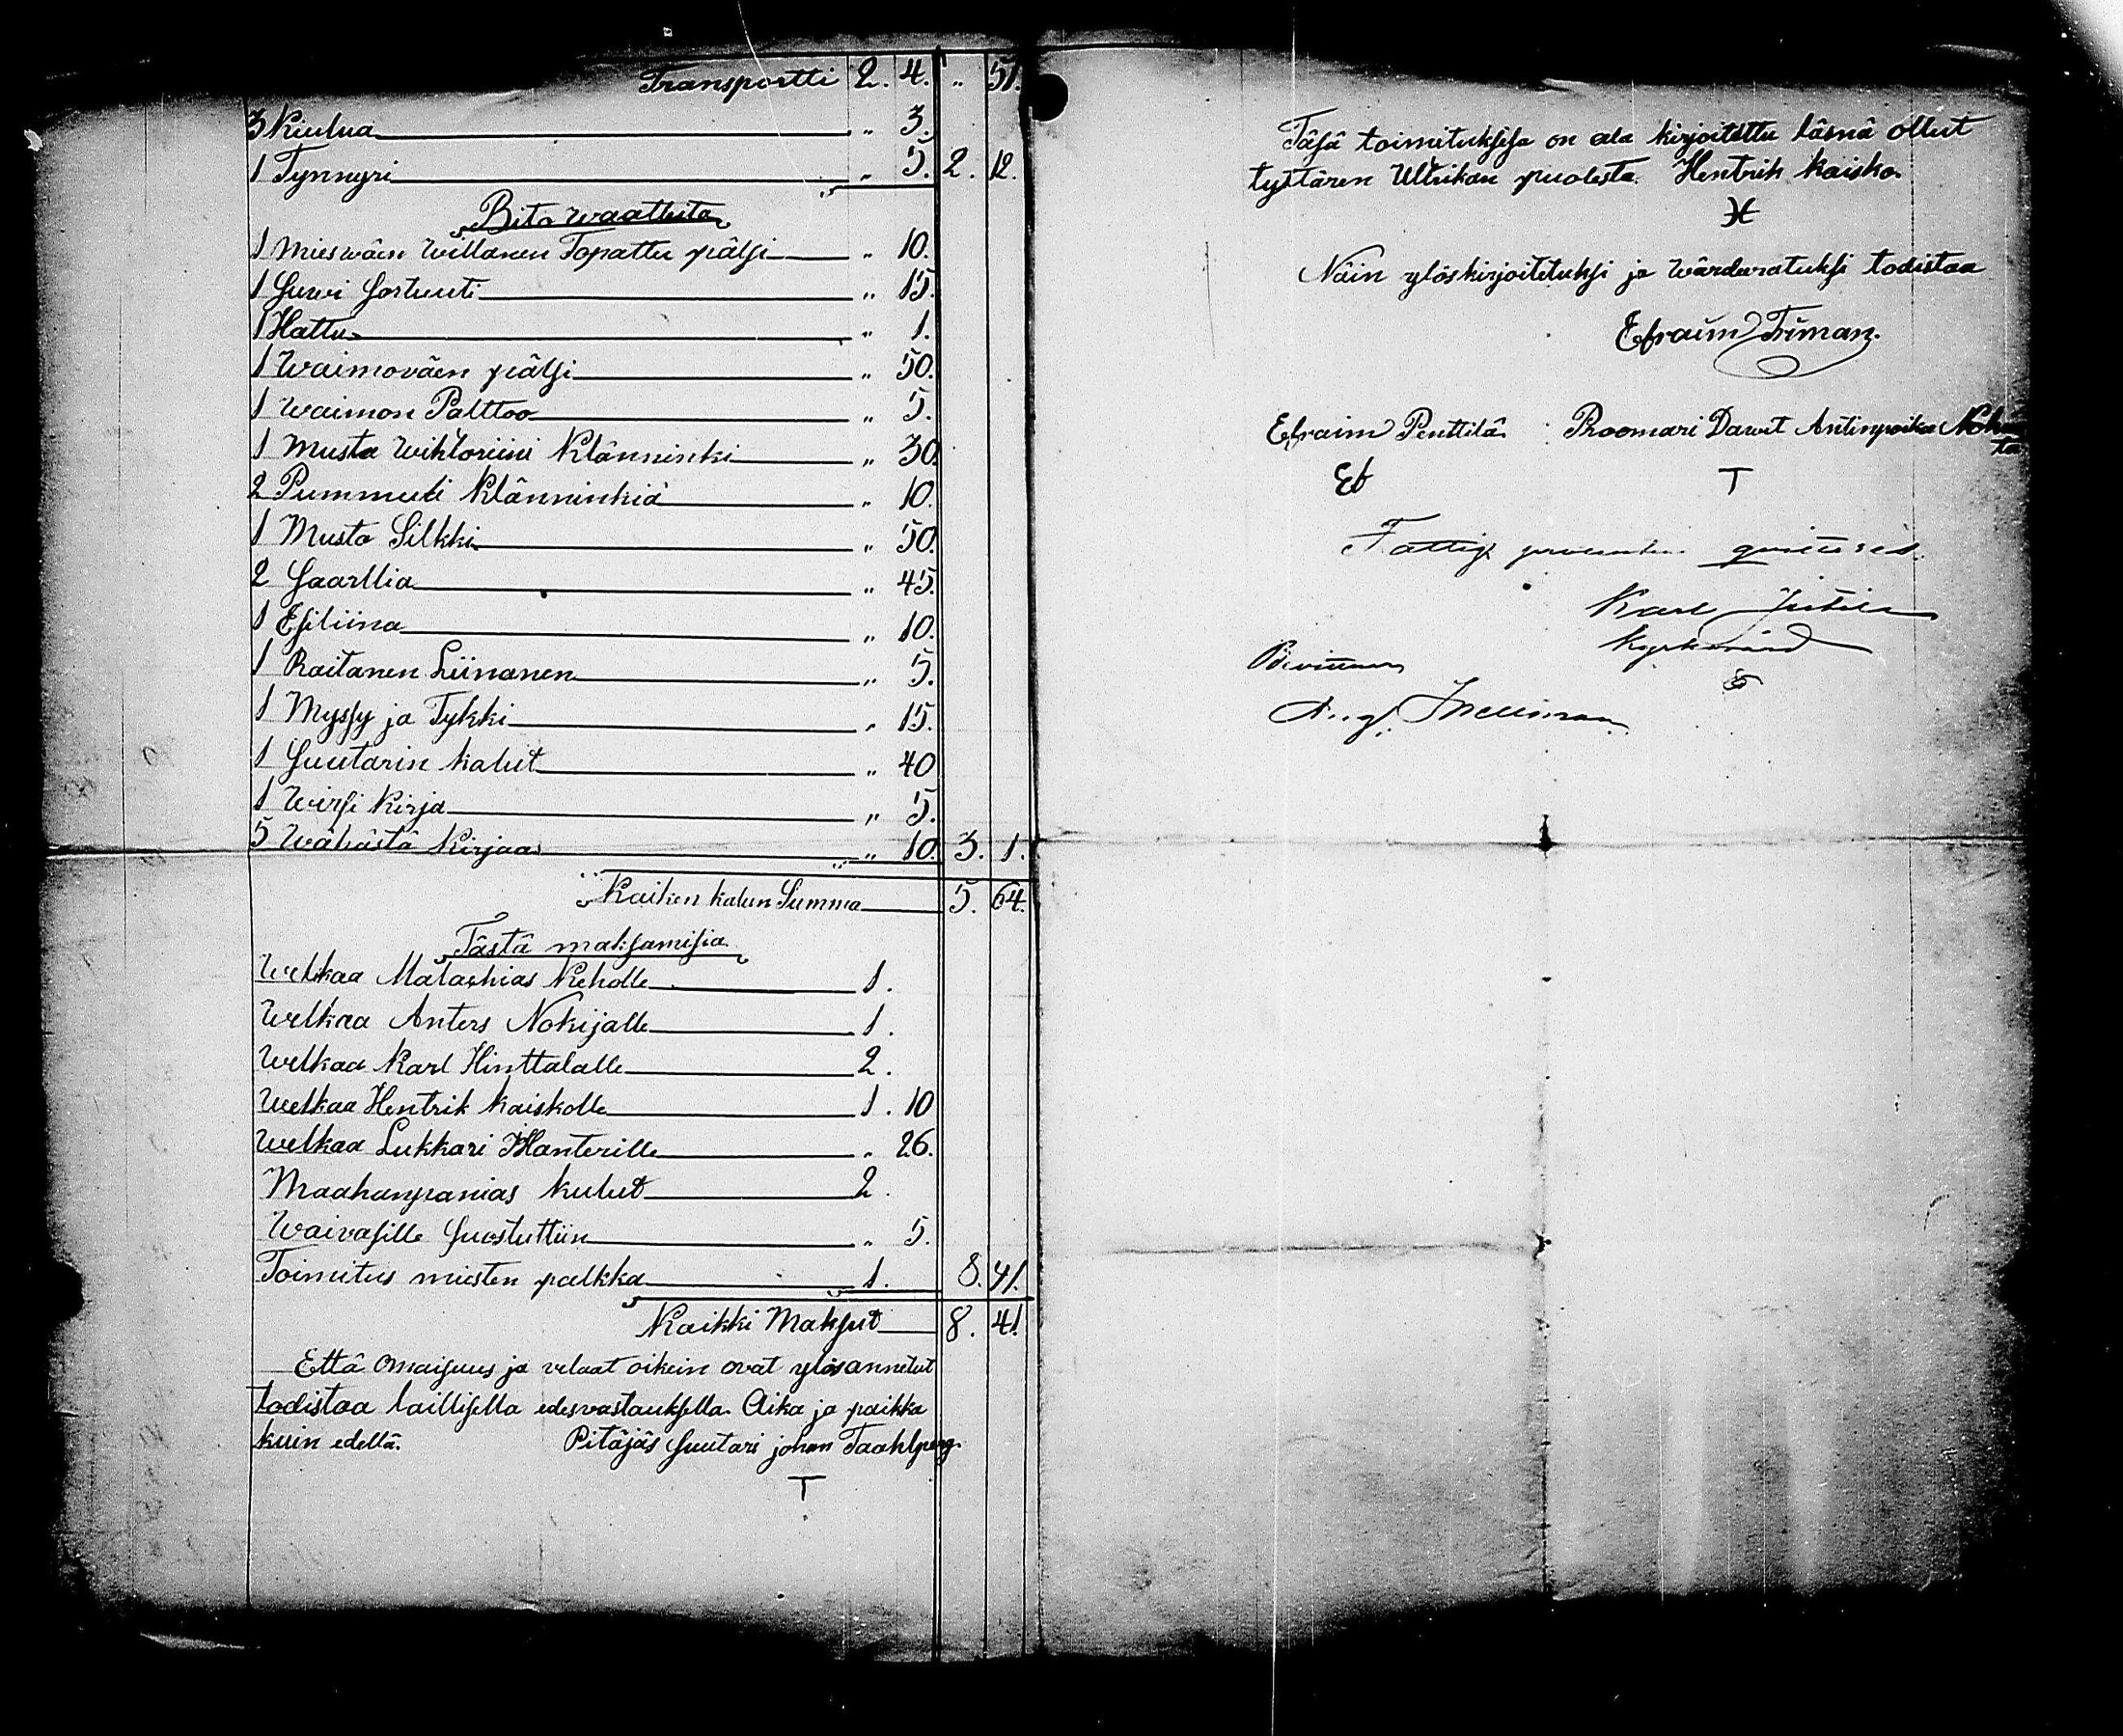 Transportti 2. 4. " 51.
3 Kiulua " 3.
1 Tynnyri " 5. 2. 12.
Pito waatteita
1 Mieswäen Willanen Topattu pälsi " 10.
1 Suwi Sortuuti " 15.
1 Hattu " 1.
1 Waimoväen pälsi " 50.
1 Waimon Palttoo " 5.
1 Musta Wihtoriini Klänninki " 30.
2 Pummuli Klänninkiä " 10.
1 Musta Silkki " 50.
2 Saarllia " 45.
1 Esiliina " 10.
1 Raitanen Liinanen " 5.
1 Myssy ja Tykki " 15.
1 Suutarin kalut " 40
1 Wirsi Kirja " 5.
5 Wähästä Kirjaa " 10. 3. 1.
Kaiken kalun Summa 5. 64.
Tästä maksamisia
Welkaa Malachias Keholle 1.
Welkaa Anters Nokijalle 1.
Welkaa Karl Hinttalalle 2.
Welkaa Hentrik Kaiskolle 1. 10
Welkaa Lukkari " 26.
Maahanpanias kulut 2.
Waivasille Suostuttiin " 5.
Toimitus miesten palkka 1. 8. 41.
Kaikki Maksut 8. 41.
Että Omaisuus ja velaat oikein ovat ylösannetut
todistaa laillisella edesvastauksella. Aika ja paikka
kuin edellä. Pitäjäs Suutari johan Taahlperg.
T
Täsä toimituksesa on ala kirjoitettu läsnä ollut
tyttären Ulrikan puolesta Hentrik Kaisko.
Näin ylöskirjoitetuksi ja Wärderatuksi todistaa
Efraim Friman.
Efraim Penttilä Roomari Dawit Antinpoika
Ef T
Fattig procenten quitteras
Karl
Kyrkvärd
Bevittnar